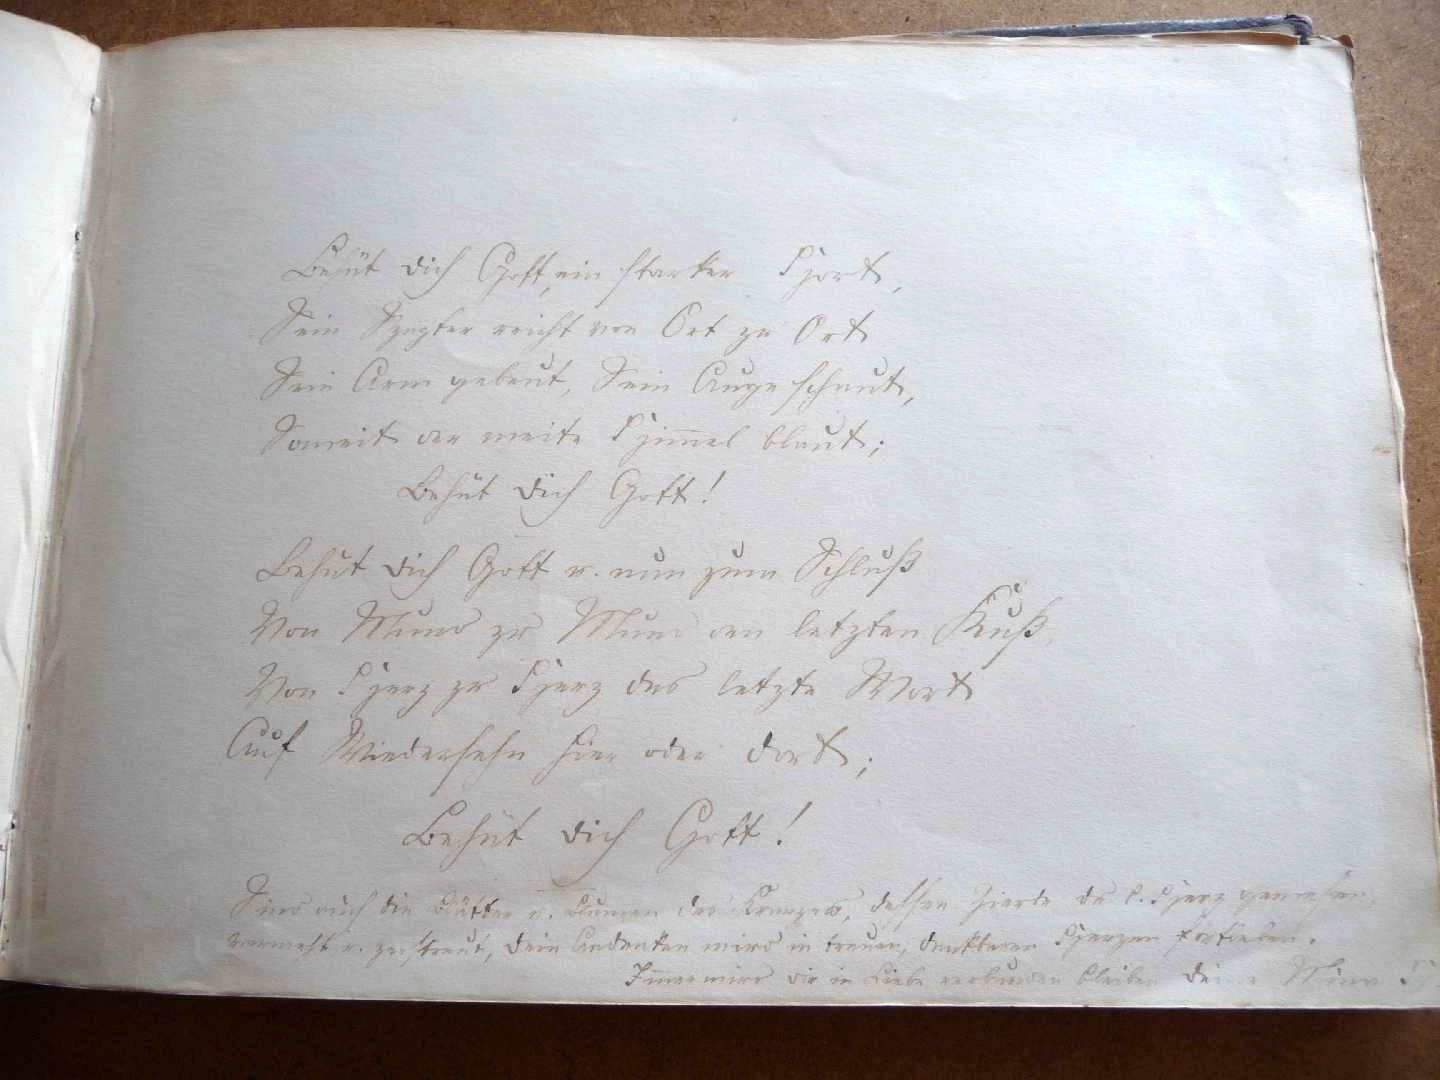 Behüt dich Gott, ein starker Hort,
Sein Szepter reicht von Ort zu Ort
Sein Arm gebeut, Sein Auge schaut,
Soweit der weite Himmel blaut;
Behüt dich Gott!
Behüt dich Gott u. nun zum Schluß
Von Mund zu Mund den letzten Kuß,
Von Herz zu Herz das letzte Wort
Auf Wiedersehn hier oder dort;
Behüt dich Gott!
Sind auch die Blätter u. Blumen des Kranzes, dessen Zierde du l. Herz gewesen,
verweht u. zerstreut, dein Andenken wird in treuen, dankbaren Herzen fortleben.
Immer wird dir in Liebe verbunden bleiben deine